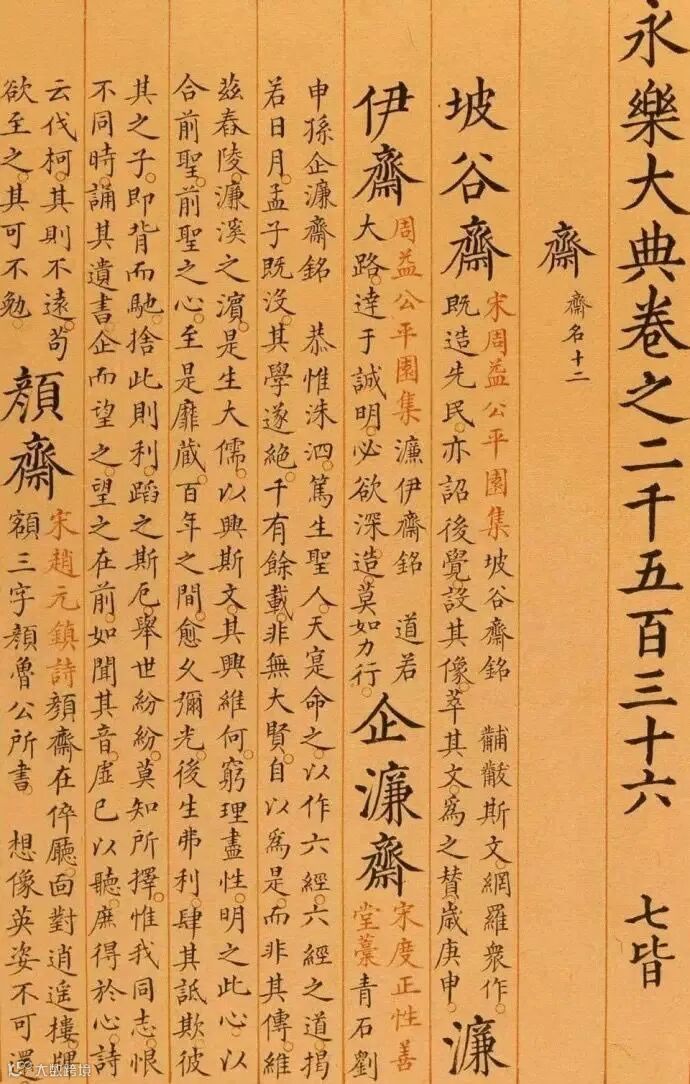 永樂大典卷之二千五百三十六 七皆
齋 齋名十二
坡谷齋
宋周益公平園集坡谷齋銘 黼黻斯文。網羅衆作。
既造先民。亦詔後覺。設其像。萃其文。爲之賛。歲庚申。
濂
伊齋
周益公平園集濂伊齋銘 道若
大路。達于誠明。必欲深造。莫如力行。
企濂齋
宋度正性善
堂藁青石劉
申孫企濂齋銘 恭惟洙泗。篤生聖人。天寔命之。以作六經。六經之道。揭
若日月。孟子既没。其學遂絶。千有餘載。非無大賢。自以爲是。而非其傳。維
兹舂陵。濂溪之濵。是生大儒。以興斯文。其興維何。窮理盡性。明之此心。以
合前聖。前聖之心。至是靡藏。百年之間。愈久彌光。後生弗利。肆其詆欺。彼
其之子。即背而馳。捨此則利。蹈之斯厄。舉世紛紛。莫知所擇。惟我同志。恨
不同時。誦其遺書。企而望之。望之在前。如聞其音。虛已以聽。庶得於心。詩
云伐柯。其則不遠。苟
欲至之。其可不勉。
顔齋
宋趙元鎮詩顔齋在倅廳。面對逍遥樓。牌
額三字顔魯公所書。 想像英姿不可還
大数跨境